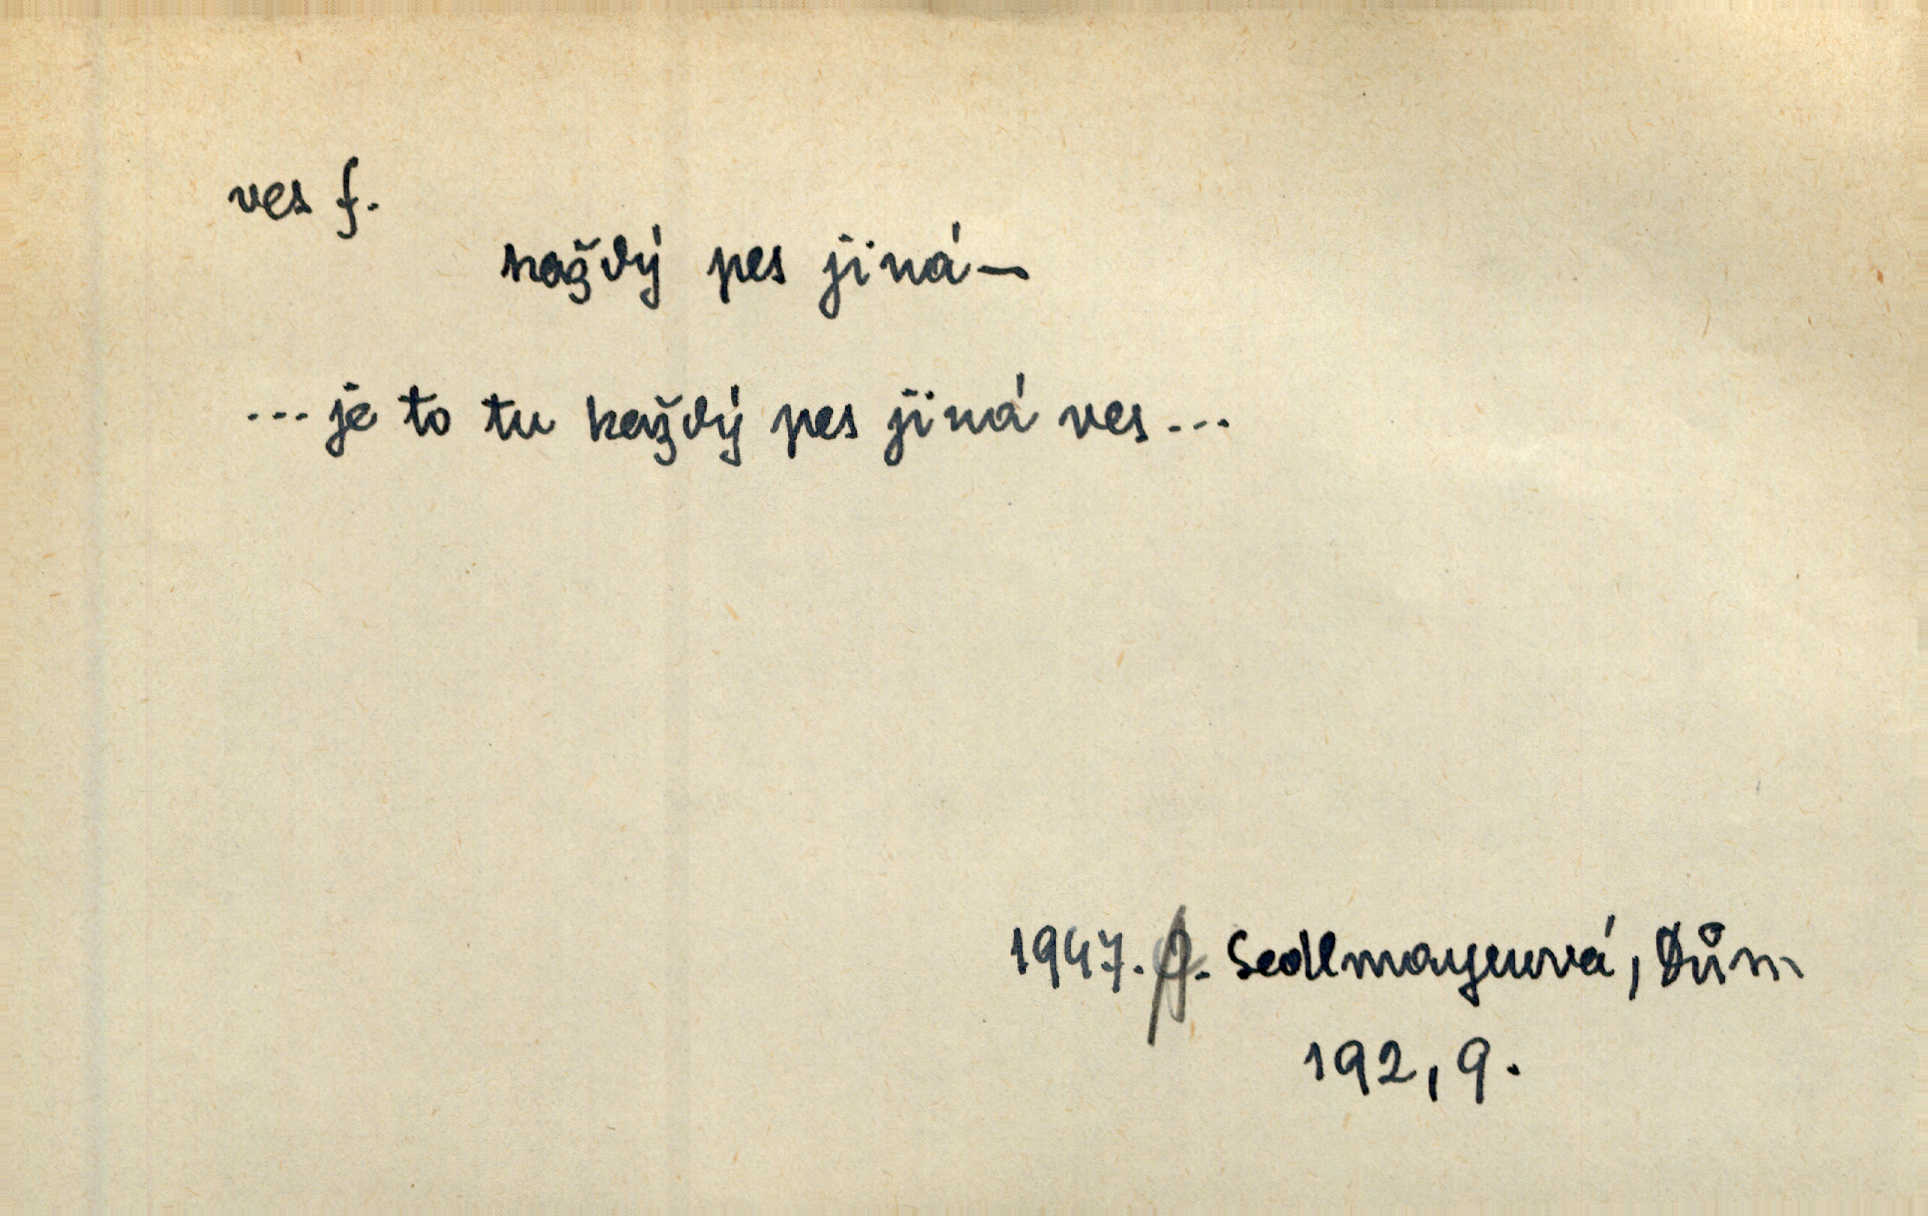 ves f.
každý pes jiná –
... je to tu každý pes jiná ves ...
1947. J. Sedlmayerová, Dům
192, 9.